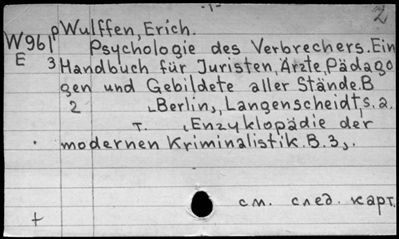 -1-
2
W961 p Wulffen, Erich.
E 3 Psychologie des Verbrechers. Ein
Handbuch für Juristen, Ärzte, Pädago
gen und Gebildete aller Stände. B
2 Berlin, Langenscheidt, s. a.
т. Enzyklopädie der
modernen Kriminalistik. B. 3,.
см. след. карт.
+